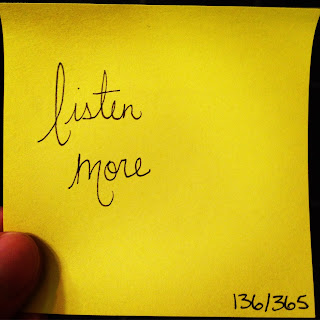 listen
more
136/365